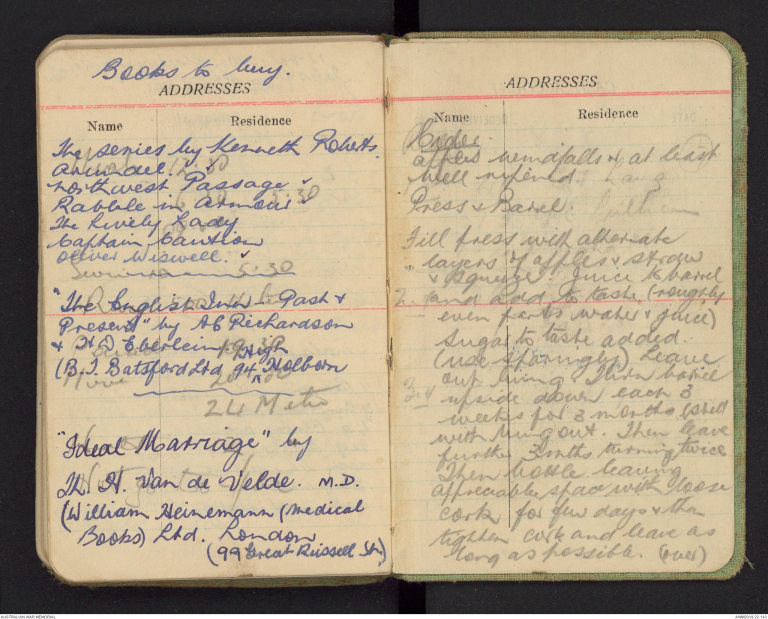 Books to buy.
ADDRESSES
Name Residence
The series by Kenneth Roberts.
Arundel.
Northwest Passage ✓
Rabble in Armour ✓
The Lively Lady
Captain Caution
Oliver Wiswell. ✓
5:30
"The English Inn - Past &
Present" by AE Richardson
& H D Eberlein.
(B.T. Batsford Ltd 94 High Holborn
24 Metre
"Ideal Marriage" by
Th. H. Van de Velde. M.D.
(William Heinemann (Medical
Books) Ltd. London
(99 Great Russell St.)
ADDRESSES
Name Residence
apples windfalls & at least
well ripened.
Press & Barrel.
Fill press with alternate
layers of apples & straw
& squeeze. Juice to barrel
2. and add to taste (roughly
even parts water & juice)
Sugar to taste added.
(use sparingly) Leave
out bung. Turn barrel
upside down each 3
weeks for 3 months (still
with bung out. Then leave
further 3 mths turning twice
Then bottle leaving
appreciable space with loose
cork for few days & then
tighten cork and leave as
long as possible. (over)
AUSTRALIAN WAR MEMORIAL